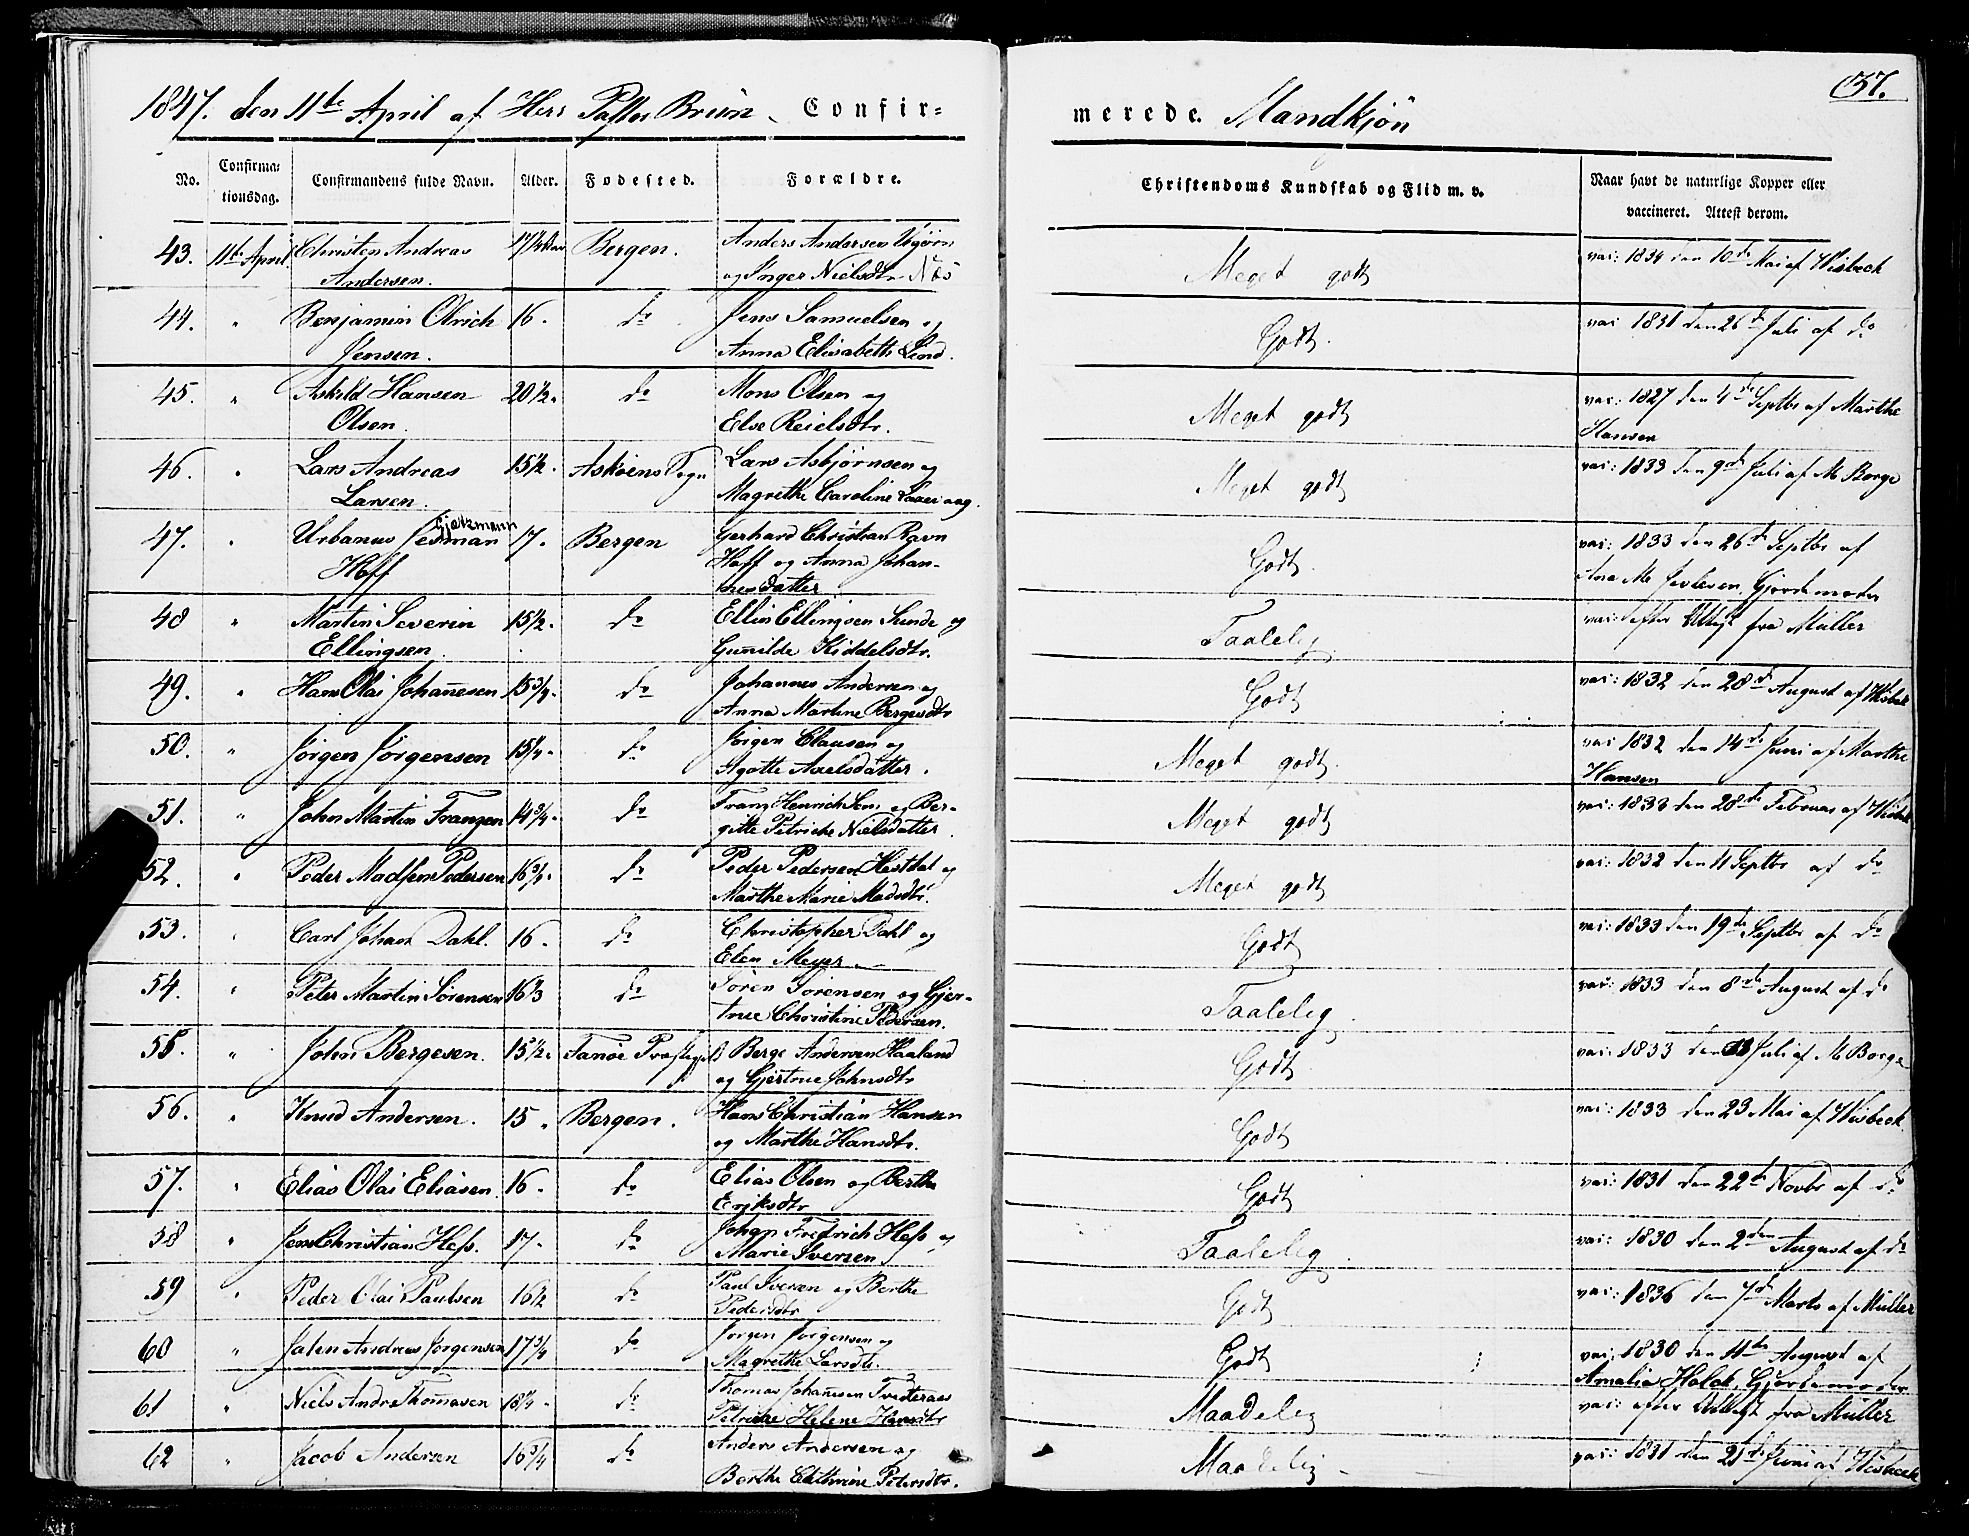 1847. den 11te April af Herr Pastor Bruun. Confir=
merede. Mandkjön
37.
No. Confirma: tionsdag. Confirmandens fulde Navn. Alder. Fødested. Forældre. Christendoms Kundskab og Flid m. v. Naar havt de naturlige Kopper eller
vaccineret. Attest derom.
43. 11te April Christen Andreas 17 1/4 Bergen. Anders Andersen Meget godt vac: 1834 den 10de Mai af Wisbech
Andersen. og Inger Nielsdtr Næs
44. " Benjamin Olrich 16. do Jens Samuelsen og Godt. vac 1831 den 26de Juli af do
Jensen. Anna Elisabeth Lind.
45. " Askild Hansen 20 1/2. do Mons Olsen og Meget godt vac: 1827 den 4de Septbr af Marthe
Olsen. Else Reielsdtr. Hansen
46. " Lars Andreas 15 1/2. Askøens Sogn Lars Asbjørnsen og Meget godt vac: 1833 den 9de Juli af M Borge
Larsen. Magrethe Caroline
47. " Urbanus Jesman Gjertzmann 17. Bergen Gerhard Christian Ravn Godt. vac: 1833 den 26de Septbr af
Hoff Hoff og Anna Johan- Ana M. Gjordemoder
nesdatter
48 " Martin Severin 15 1/2. do Ellin Ellingsen Sunde og Taalelig vac: efter Udtogt fra Müller
Ellingsen. Gunilde Kiddelsdtr.
49. " Hans Olai Johannesen 15 3/4. do Johannes Andersen og Godt vac: 1832 den 28de August af Wisbek
Anna Martine Bergesdtr
50. " Jørgen Jørgensen 15 1/4. do Jørgen Clausen og Meget godt. vac 1832 den 14de Juni af Marthe
Agatte Axelsdatter. Hansen
51. " John Martin Franzen 14 3/4. do Franz Henrichsen og Ber- Meget godt vac: 1833 den 28de Februar af Wisbek
gitte Petriche Nielsdatter.
52. " Peder Madssen Pedersen 16 3/4. do Peder Pedersen Hesthal og Meget godt vac: 1832 den 11 Septbr af do
Marthe Marie Madsdtr.
53. " Carl Johan Dahl. 16. do Christopher Dahl og Godt vac: 1833 den 19de Septbr. af do
Elen Meyer
54. " Peter Martin Sørensen 16 1/3 do Søren Sørensen og Gjer- Taalelig vac: 1833 den 8de August af do
true Christine Pedersen.
55. " John Bergesen. 15 1/2. Fanøe Præstegjeld Berge Andersen Haaland Godt vac: 1833 den Juli af M Borge
og Gjertrue Johnsdtr
56. " Knud Andersen. 15. Bergen. Hans Christian Hansen Godt vac: 1833 den 23 Mai af Wisbech.
og Marthe Hansdtr.
57. " Elias Olai Eliasen 16. do Elias Olsen og Berthe Godt vac: 1831 den 22de Novbr af do
Eriksdtr
58 " Jens Christian Hess. 17. do Johan Fredrich Hess og Taalelig vac: 1830 den 2den August af do
Marie Iversen
59 " Peder Olai Paulsen 16 1/2 do Paul Iversen og Berthe Godt vac: 1836 den 7de Marts af Müller
Pedersdtr
60 " John Andreas Jørgensen 17 3/4 do Jørgen Jørgensen og Godt vac: 1830 den 11te August af
Magrethe Larsdtr. Amalia Holck, Gjordemoder
61 " Niels Andre Thomasen 18 1/4. do Thomas Johannesen Tvedteraas Maadelig vac: efter Udtogt fra Müller
Petriche Helene Hansdtr
62 " Jacob Andersen 16 3/4 do Anders Andersen og Maadelig vac: 1831 den 21de Juni af Wisbech
Berthe Cathrine Petersdtr.